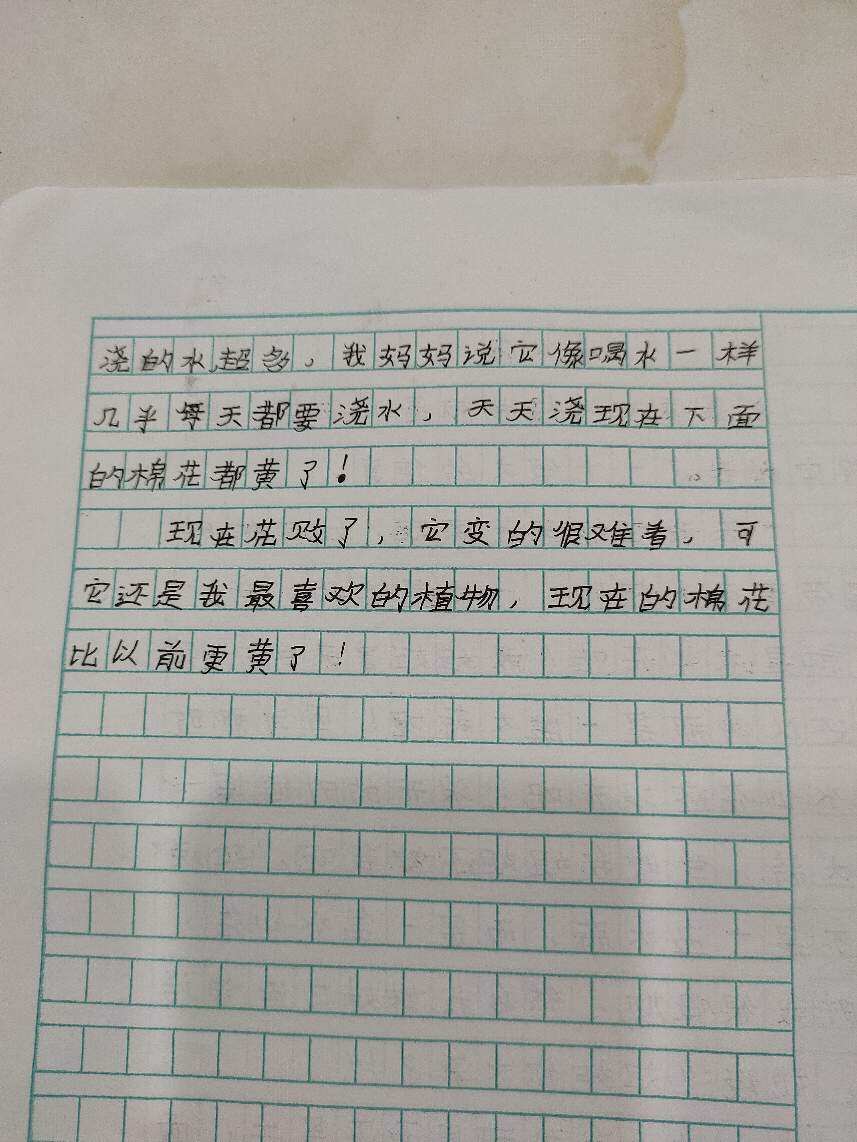 浇的水超多，我妈妈说它像喝水一样
几乎每天都要浇水，天天浇现在下面
的棉花都黄了！
现在花败了，它变的很难看，可
它还是我最喜欢的植物，现在的棉花
比以前更黄了！